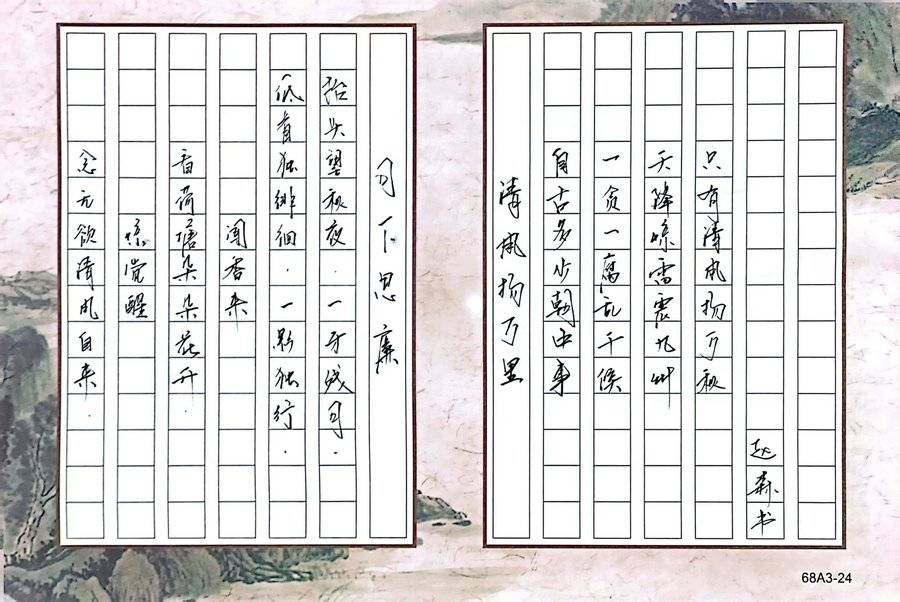 月下思廉
抬头望秋夜.一牙残月.
低首独徘徊.一影独行.
闻香来
香荷塘朵朵花开.
惊觉醒
念无欲清风自来.
清风扬万里
自古多少朝中事
一贪一腐乱千侯
天降惊雷震九州
只有清风扬万秋
赵森书
68A3-24